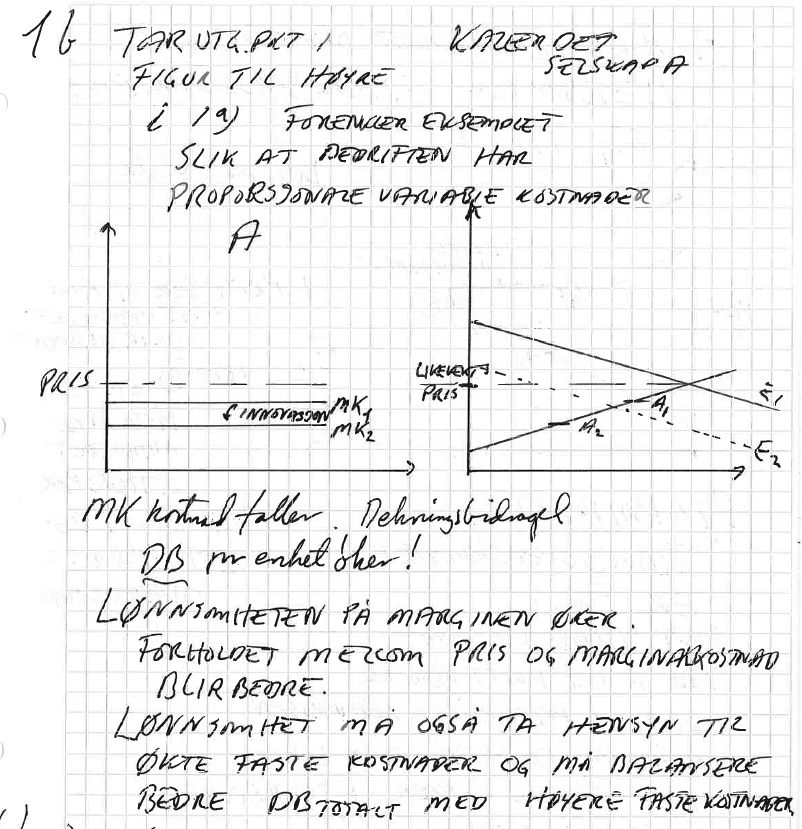 1b TAR UTG.PKT I KALLER DET
SELSKAP A
FIGUR TIL HØYRE
i 1a) FORENKLER EKSEMPLET
SLIK AT BEDRIFTEN HAR
PROPORSJONALE VARIABLE KOSTNADER
A
K
PRIS
MK1
INNOVASJON
MK2
LIKEVEKT
PRIS
E1
A1
A2
E2
MK kostnad faller. Dekningsbidraget
DB pr enhet øker!
LØNNSOMHETEN PÅ MARGINEN ØKER.
FORHOLDET MELLOM PRIS OG MARGINALKOSTNAD
BLIR BEDRE.
LØNNSOMHET MÅ OGSÅ TA HENSYN TIL
ØKTE FASTE KOSTNADER OG MÅ BALANSERE
BEDRE DB TOTALT MED HØYERE FASTE KOSTNADER